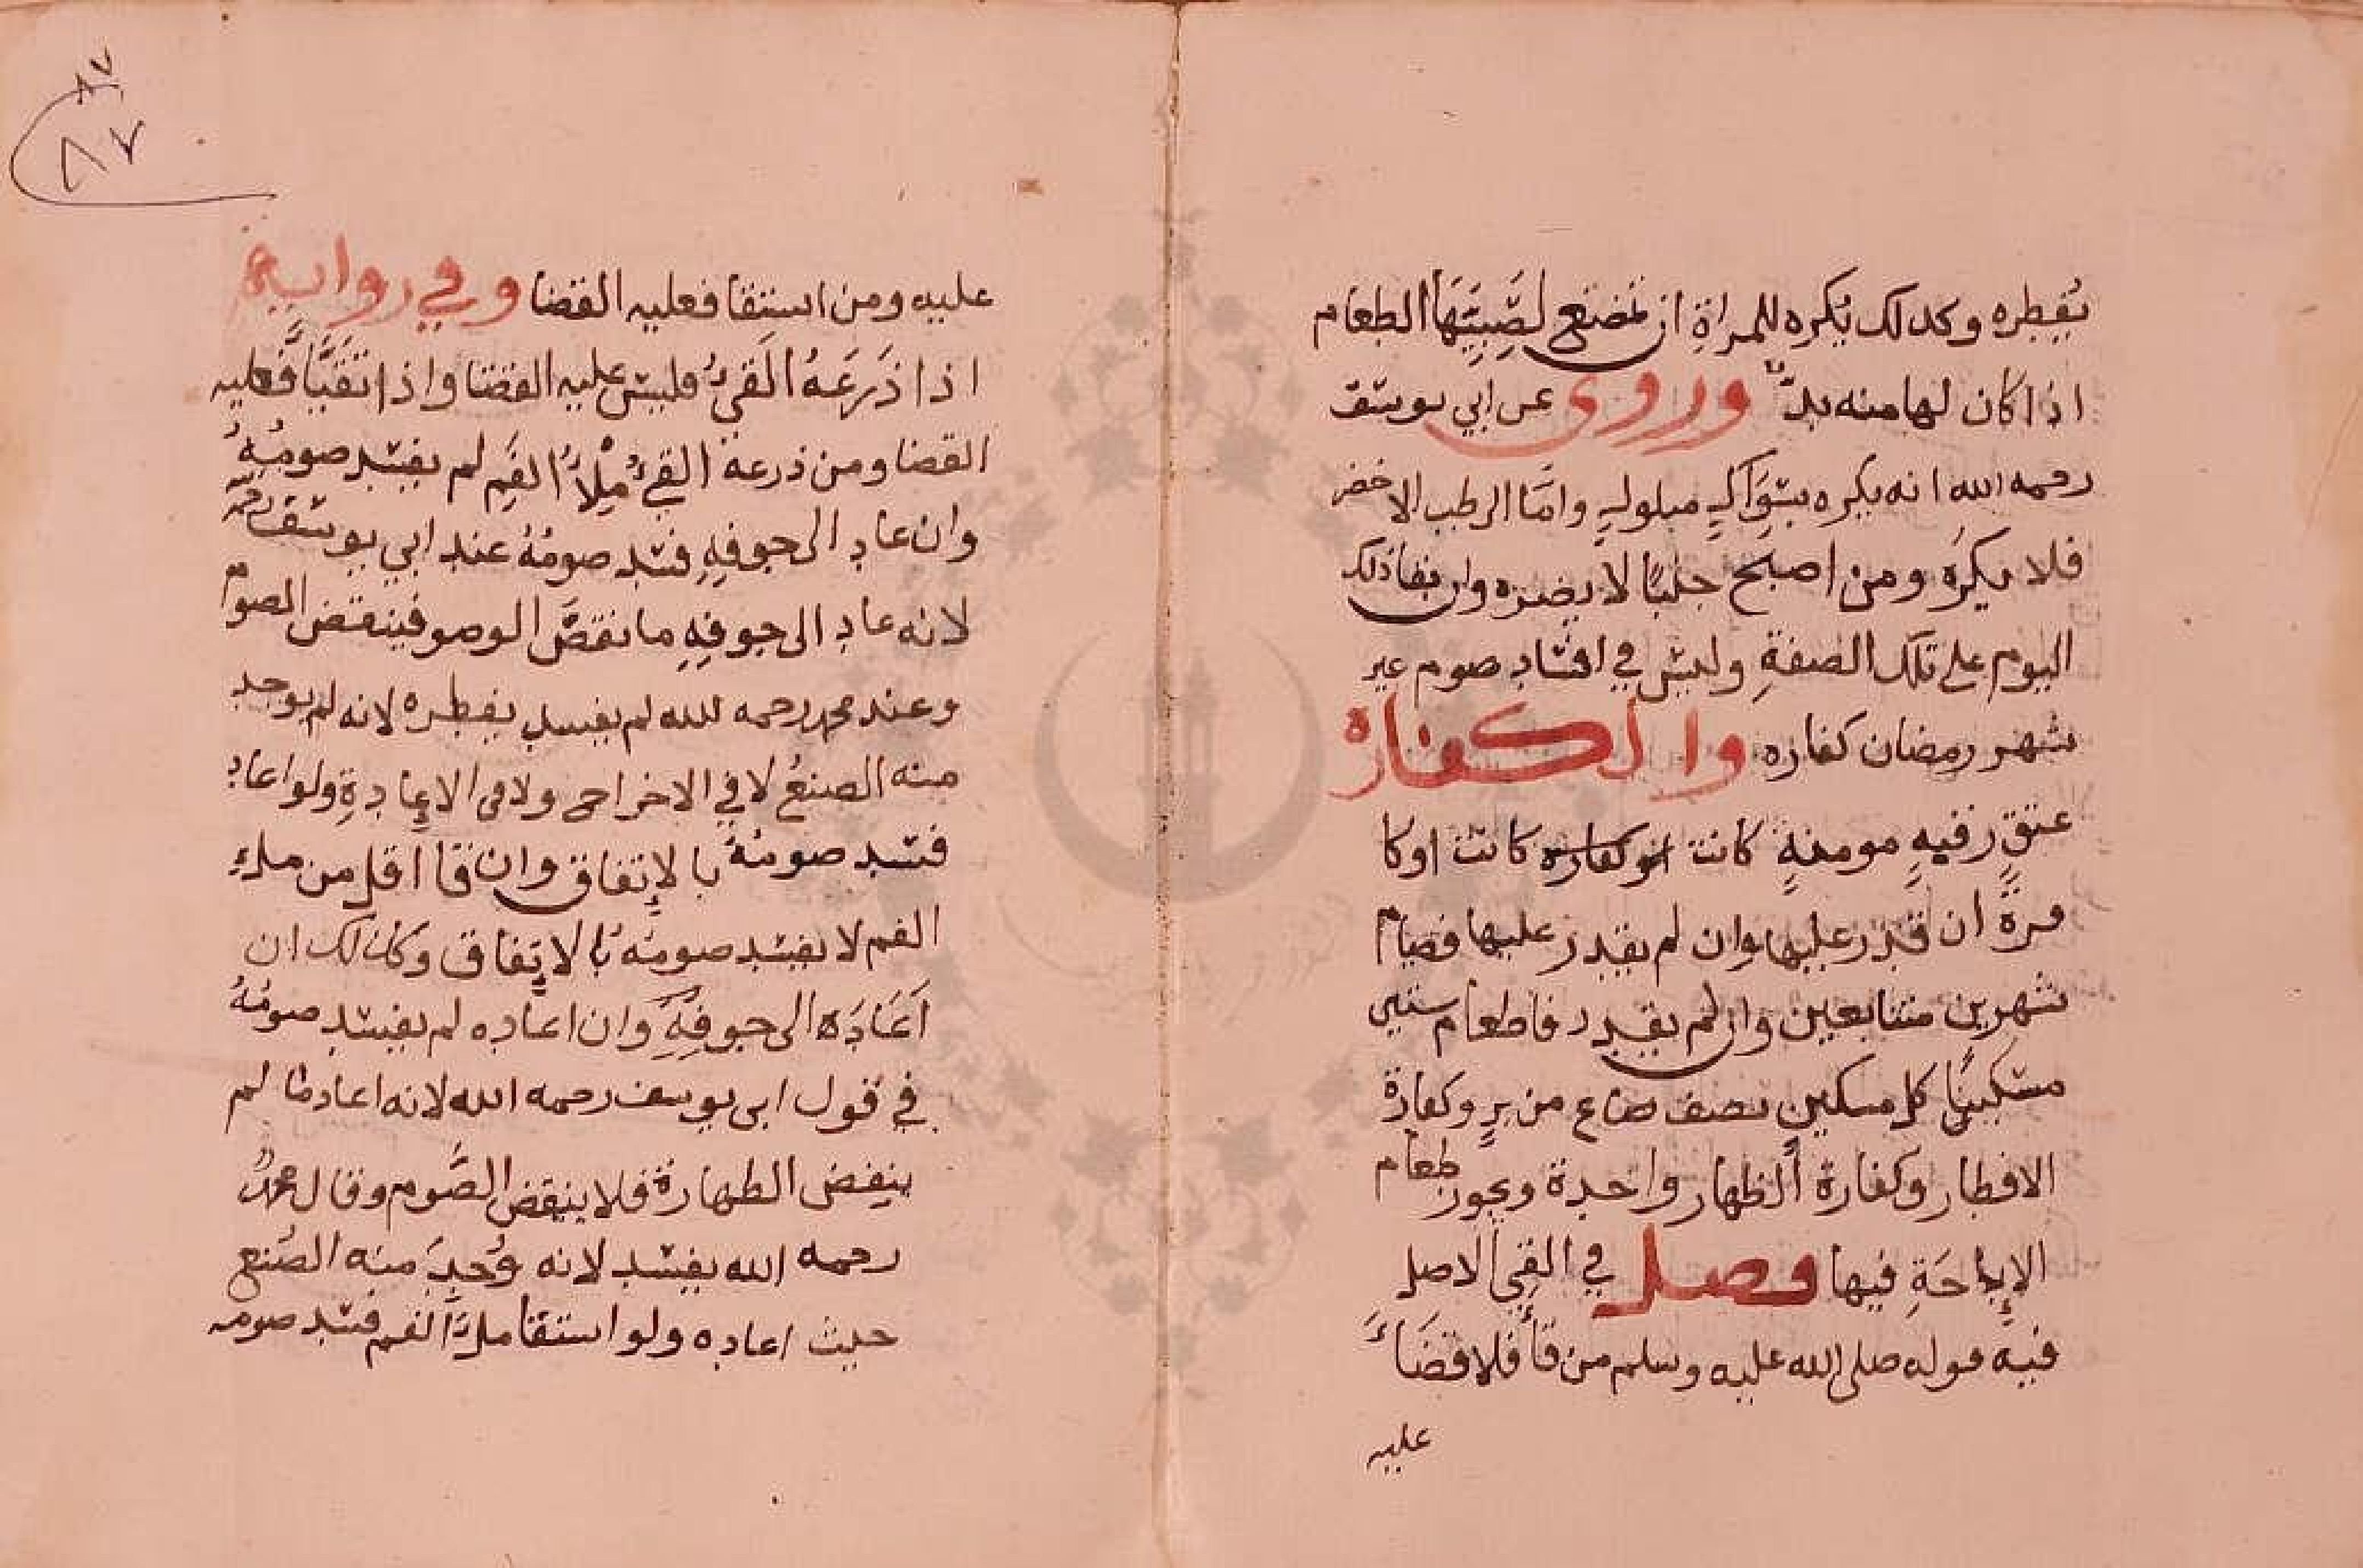 يُفطره وكدلك يُكره للمراةِ ان تمضغ لصَّبِيَّتِهَا الطعام
اذا كان لها منه بدٌّ وروى عن ابي يوسف
رحمه الله انه يكره بسِّوَاكٍ مبلولٍ وامَّا الرطب الاخضر
فلا يكرَه ومن اصبح جنبًا لا يضره وان بقا ذلك
اليوم على تلك الصفةِ وليس في افساد صوم غير
شهر رمضان كفاره والكفارة
عتقِ رقبهٍ مومنهٍ كانت كانت او كا
فرةً ان قدر عليها وان لم يقدر عليها فصيام
شهرين متتابعين وان لم يقدر فاطعام ستين
مسكينًا كل مسكين نصف صاع من برٍ وكفارة
الافطار وكفارة الظهار واحدة ويجوز طعام
الإباحَةِ فيها فصل في القئ الاصل
فيه قوله صلى الله عليه وسلم من قأ فلا قضَاءَ
عليه
٨٧
٨٧
عليه ومن استقا فعليه القضا وفي رواية
اذا ذَرَعَهُ القَيءُ فليس عليه القضا واذا تقيَّأ فعليه
القضا ومن ذرعه القئُ مِلأُ الفَمِ لم يفسد صومُهُ
وان عاد الى جوفِهِ فسد صومُهُ عند ابي يوسف
لانه عاد الى جوفِهِ ما نقضَ الوضو فينقض الصوم
وعند محمد رحمه الله لم يفسد يفطره لانه لم يوجد
منه الصنعُ لا في الاخراج ولا فى الإعادةِ ولو اعاد
فسد صومُهُ بالإتفاق وان قا اقل من ملءِ
الفم لا يفسد صومُه بالإتفاق وكذلك ان
اَعَادَه الى جوفِهِ وان اعاده لم يفسد صومُهُ
في قول ابى يوسف رحمه الله لانه اعاد ما لم
ينقض الطهارة فلا ينقض الصَّوم وقال محمدُ
رحمه الله يفسد لانه وُجِدَ منه الصُنع
حيث اعاده ولو استقا ملأ الفم فسد صومه